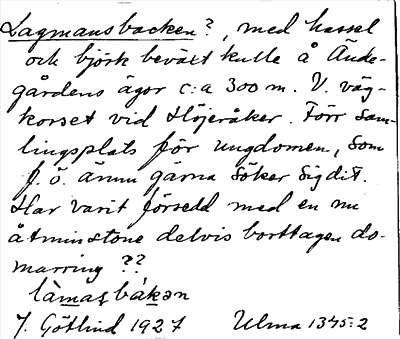 Lagmansbacken?, med hassel
och björk beväxt kulle å Ände-
gårdens ägor c:a 300 m. V. väg-
korset vid Höjeråker. Förr sam-
lingsplats för ungdomen, som
f. ö. ännu gärna söker sig dit.
Har varit försedd med en nu
åtminstone delvis borttagen do-
marring ??
làmasbákən
J. Götlind 1927 Ulma 1345:2